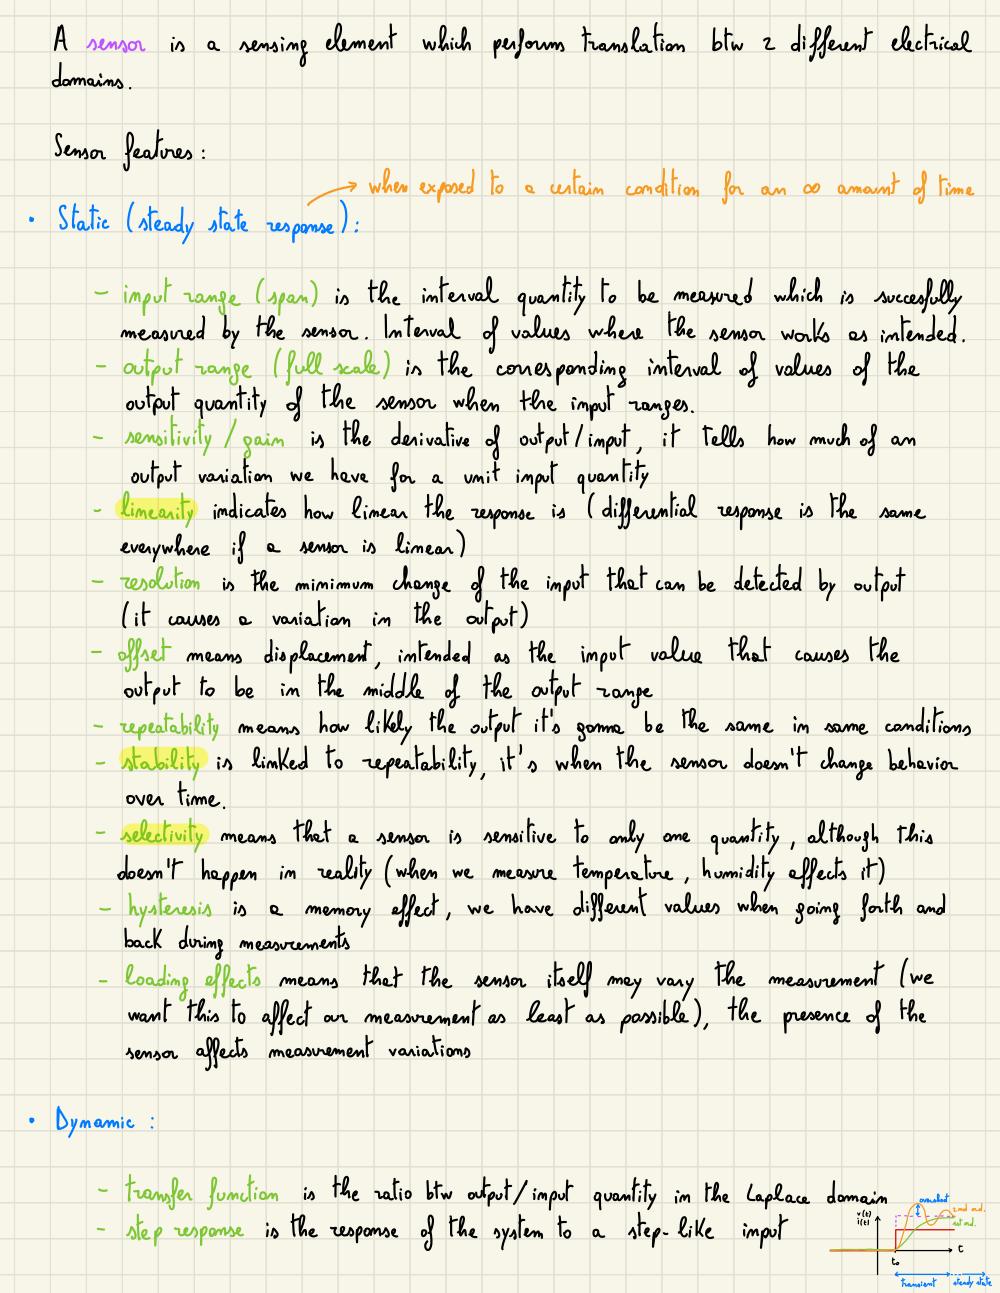 A sensor is a sensing element which performs translation btw 2 different electrical
domains.
Sensor features:
→ when exposed to a certain condition for an ∞ amount of time
• Static (steady state response):
- input range (span) is the interval quantity to be measured which is succesfully
measured by the sensor. Interval of values where the sensor works as intended.
- output range (full scale) is the corresponding interval of values of the
output quantity of the sensor when the input ranges.
- sensitivity / gain is the derivative of output/input, it tells how much of an
output variation we have for a unit input quantity
- linearity indicates how linear the response is (differential response is the same
everywhere if a sensor is linear)
- resolution is the minimum change of the input that can be detected by output
(it causes a variation in the output)
- offset means displacement, intended as the input value that causes the
output to be in the middle of the output range
- repeatability means how likely the output it's gonna be the same in same conditions
- stability is linked to repeatability, it's when the sensor doesn't change behavior
over time.
- selectivity means that a sensor is sensitive to only one quantity, although this
doesn't happen in reality (when we measure temperature, humidity affects it)
- hysteresis is a memory effect, we have different values when going forth and
back during measurements
- loading effects means that the sensor itself may vary the measurement (we
want this to affect our measurement as least as possible), the presence of the
sensor affects measurement variations
• Dynamic :
- transfer function is the ratio btw output/input quantity in the Laplace domain
- step response is the response of the system to a step-like input
overshoot
v(t)
i(t)
2nd ord.
1st ord.
t
t₀
transient
steady state